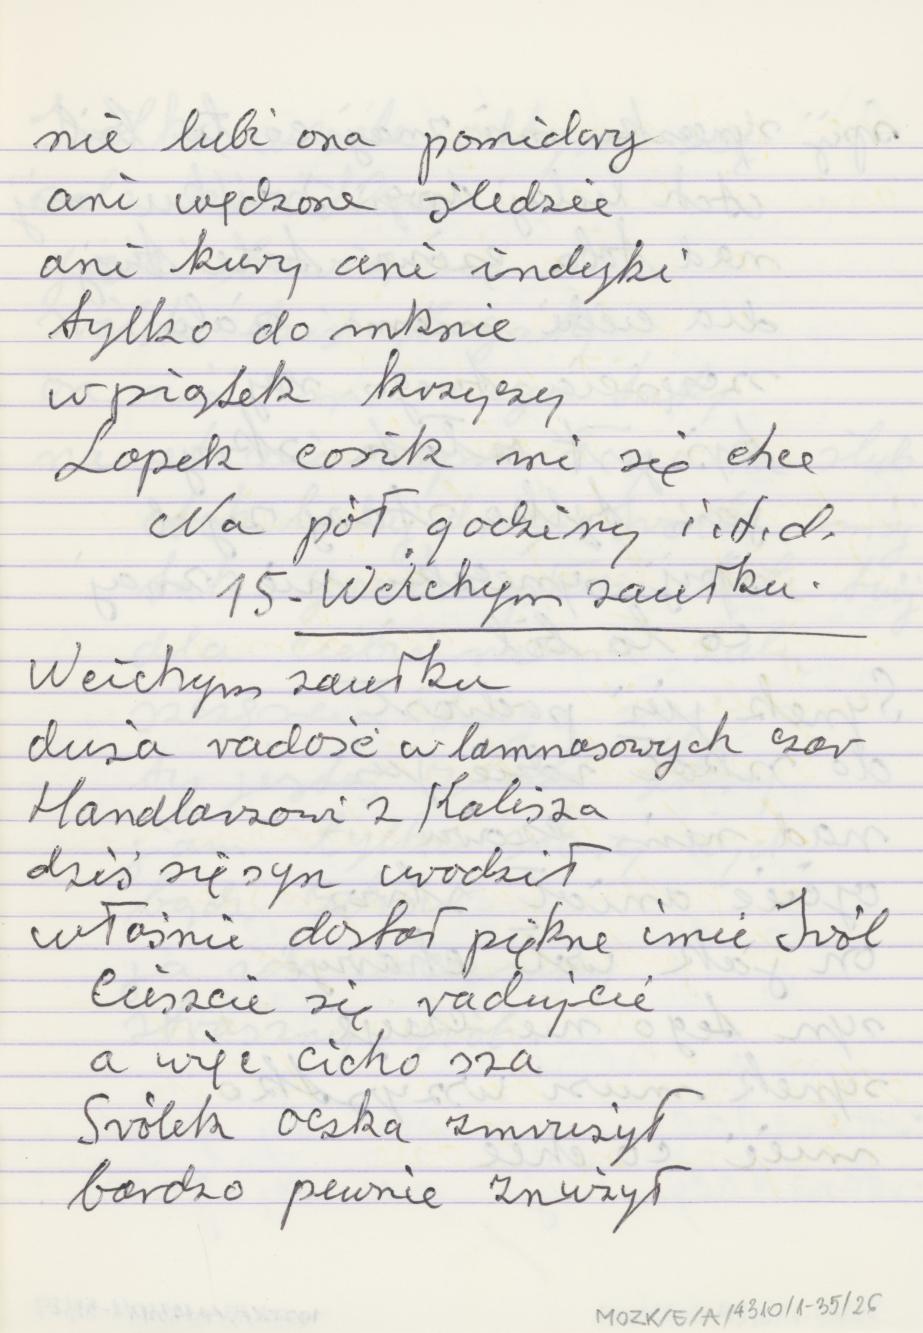 nie lubi ona pomidory
ani wędzone śledzie
ani kury ani indyki
tylko do mknie
w piątek krzyczy
Lopek cosik mi się chce
Na pół godziny i.t.d.
15. W cichym zaułku.
W cichym zaułku
duża radość w lamnasowych czar
Handlarzowi z Kalisza
dziś się syn urodził
właśnie dostał piękne imie Sról
Cieszcie się radujcie
a więc cicho sza
Srólek oczka zmrużył
bardzo pewnie znużył
MOZK/E/A/4310/1-35/26